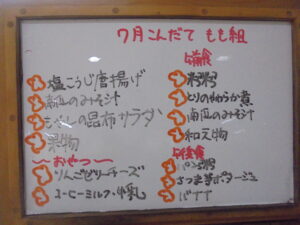 7月こんだて もも組
塩こうじ唐揚げ
南瓜のみそ汁
昆布サラダ
果物
〜おやつ〜
りんごゼリーチーズ
コーヒーミルク・牛乳
とりのやわらか煮
南瓜のみそ汁
和え物
パン粥
さつま芋ポタージュ
バナナ